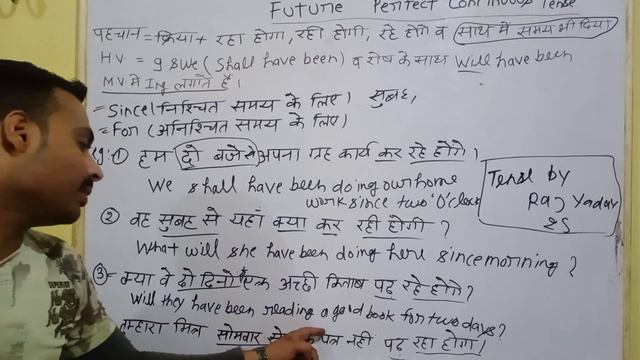 Future Perfect Continuous Tense
पहचान = क्रिया + रहा होगा, रही होगी, रहे होंगे व साथ में समय भी दिया
HV = I & we (shall have been) व शेष के साथ Will have been
MV में Ing लगाते हैं।
= Since (निश्चित समय के लिए) सुबह,
= For (अनिश्चित समय के लिए)
eg:- ① हम दो बजे से अपना गृह कार्य कर रहे होंगे।
We shall have been doing our home
work since two 'O'clock
Tense by
Raj Yadav
② वह सुबह से यहाँ क्या कर रही होगी?
What will she have been doing here since morning?
③- क्या वे दो दिनों से एक अच्छी किताब पढ़ रहे होंगे?
Will they have been reading a good book for two days?
तुम्हारा मित्र सोमवार से पत्र नहीं पढ़ रहा होगा।